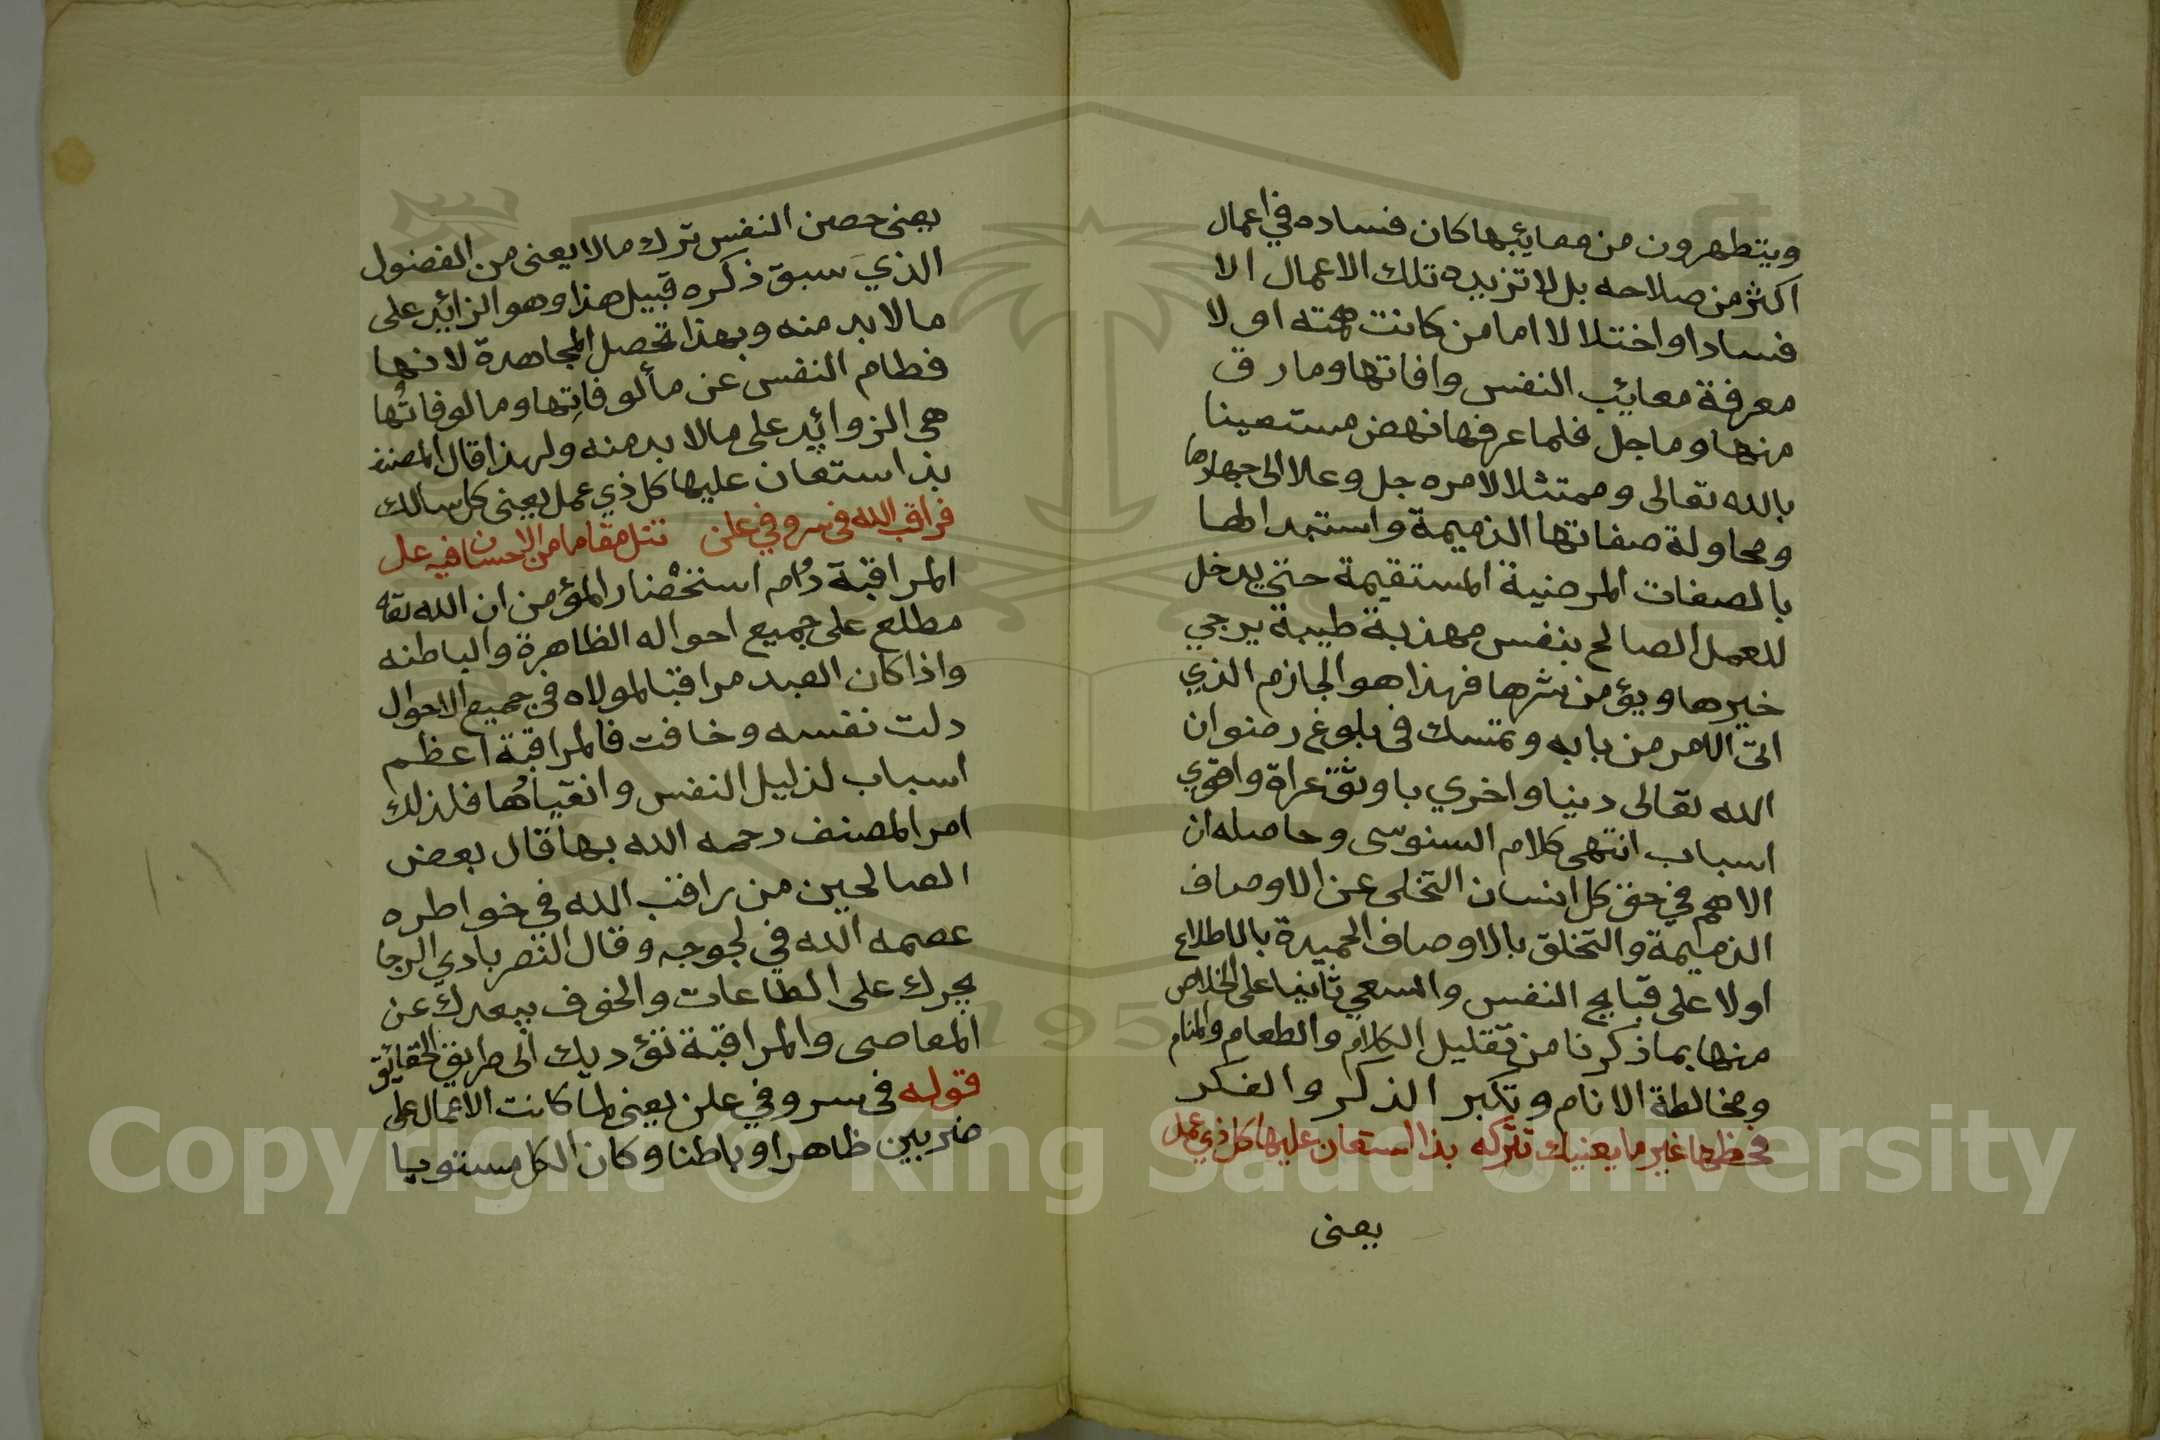 ويتطهرون من معايبها كان فساده في اعمال
اكثر من صلاحه بل لا تزيده تلك الاعمال الا
فسادا واختلالا اما من كانت همته اولا
معرفة معايب النفس وافاتها وما رق
منها وما جل فلما عرفها نهض مستعينا
بالله تعالى وممتثلا لامره جل وعلا الى جهادها
ومحاولة صفاتها الذميمة واستبدالها
بالصفات المرضية المستقيمة حتي يدخل
للعمل الصالح بنفس مهذبة طيبة يرجي
خيرها ويؤمن شرها فهذا هو الجازم الذي
اتى الامر من بابه وتمسك في بلوغ رضوان
الله تعالى دنيا واخري باوثق عراة واقوي
اسباب انتهى كلام السنوسى وحاصله ان
الاهم في حق كل انسان التخلى عن الاوصاف
الذميمة والتخلق بالاوصاف الحميدة بالاطلاع
اولا على قبايح النفس والسعي ثانيا على الخلاص
منها بما ذكرنا من تقليل الكلام والطعام والمنام
ومخالطة الانام وتكبر الذكر والفكر
فحظها غير ما يعنيك تتركه بذا استعان عليها كل ذي عمل
يعنى
يعنى حصن النفس ترك ما لا يعنى من الفضول
الذي سبق ذكره قبيل هذا وهو الزائد على
ما لا بد منه وبهذا تحصل المجاهدة لانها
فطام النفس عن مألوفاتها ومالوفاتها
هى الزوائد على ما لا بد منه ولهذا قال المصنف
بذا استعان عليها كل ذي عمل يعنى كل سالك
فراقب الله فى سر وفي علن تنل مقاما من الاحسان فيه على
المراقبة دوام استحضار المؤمن ان الله تعا
مطلع على جميع احواله الظاهرة والباطنه
واذا كان العبد مراقبا لمولاه في جميع الاحوال
دلت نفسه وخافت فالمراقبة اعظم
اسباب لذليل النفس وانقيادها فلذلك
امر المصنف رحمه الله بها قال بعض
الصالحين من راقب الله في خواطره
عصمه الله في جوجه وقال النصربادي الرجا
يجرك على الطاعات والخوف يبعدك عن
المعاصى والمراقبة تؤديك الى طريق الحقائق
قوله فى سر وفي علن يعنى لما كانت الاعمال على
ضربين ظاهرا وباطنا وكان الكل مستويا
Copyright © King Saud University
1957